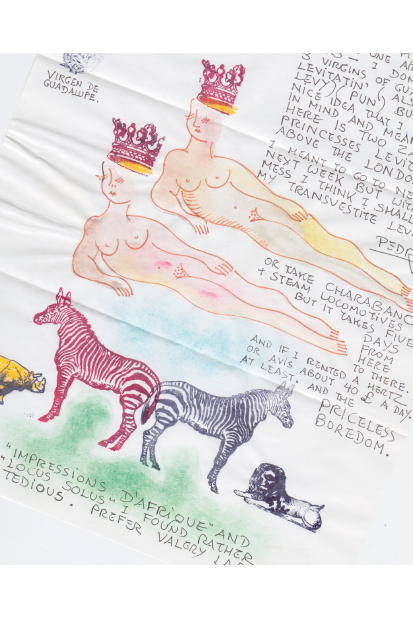 VIRGEN DE
GUADALUPE.
ONE AR
3 VIRGINS OF GU
LEVITATIN'
LEVY) (PUN)
NICE IDEA THAT I
IN MIND AND MEAN
HERE IS TWO Z
PRINCESSES LEVI
ABOVE THE LONDO
I MEANT TO GO TO NE
NEXT WEEK BUT WITH
MESS I THINK I SHALL
MY TRANSVESTITE LEVI
PEDR
OR TAKE CHARABANC
+ STEAM LOCOMOTIVES
BUT IT TAKES FIVE
DAYS
FROM
HERE
TO THERE.
AND IF I RENTED A HERTZ
OR AVIS ABOUT 40 £ A DAY.
AT LEAST. AND THE
PRICELESS
BOREDOM.
"IMPRESSIONS D'AFRIQUE" AND
"LOCUS SOLUS" I FOUND RATHER
TEDIOUS. PREFER VALERY LAR